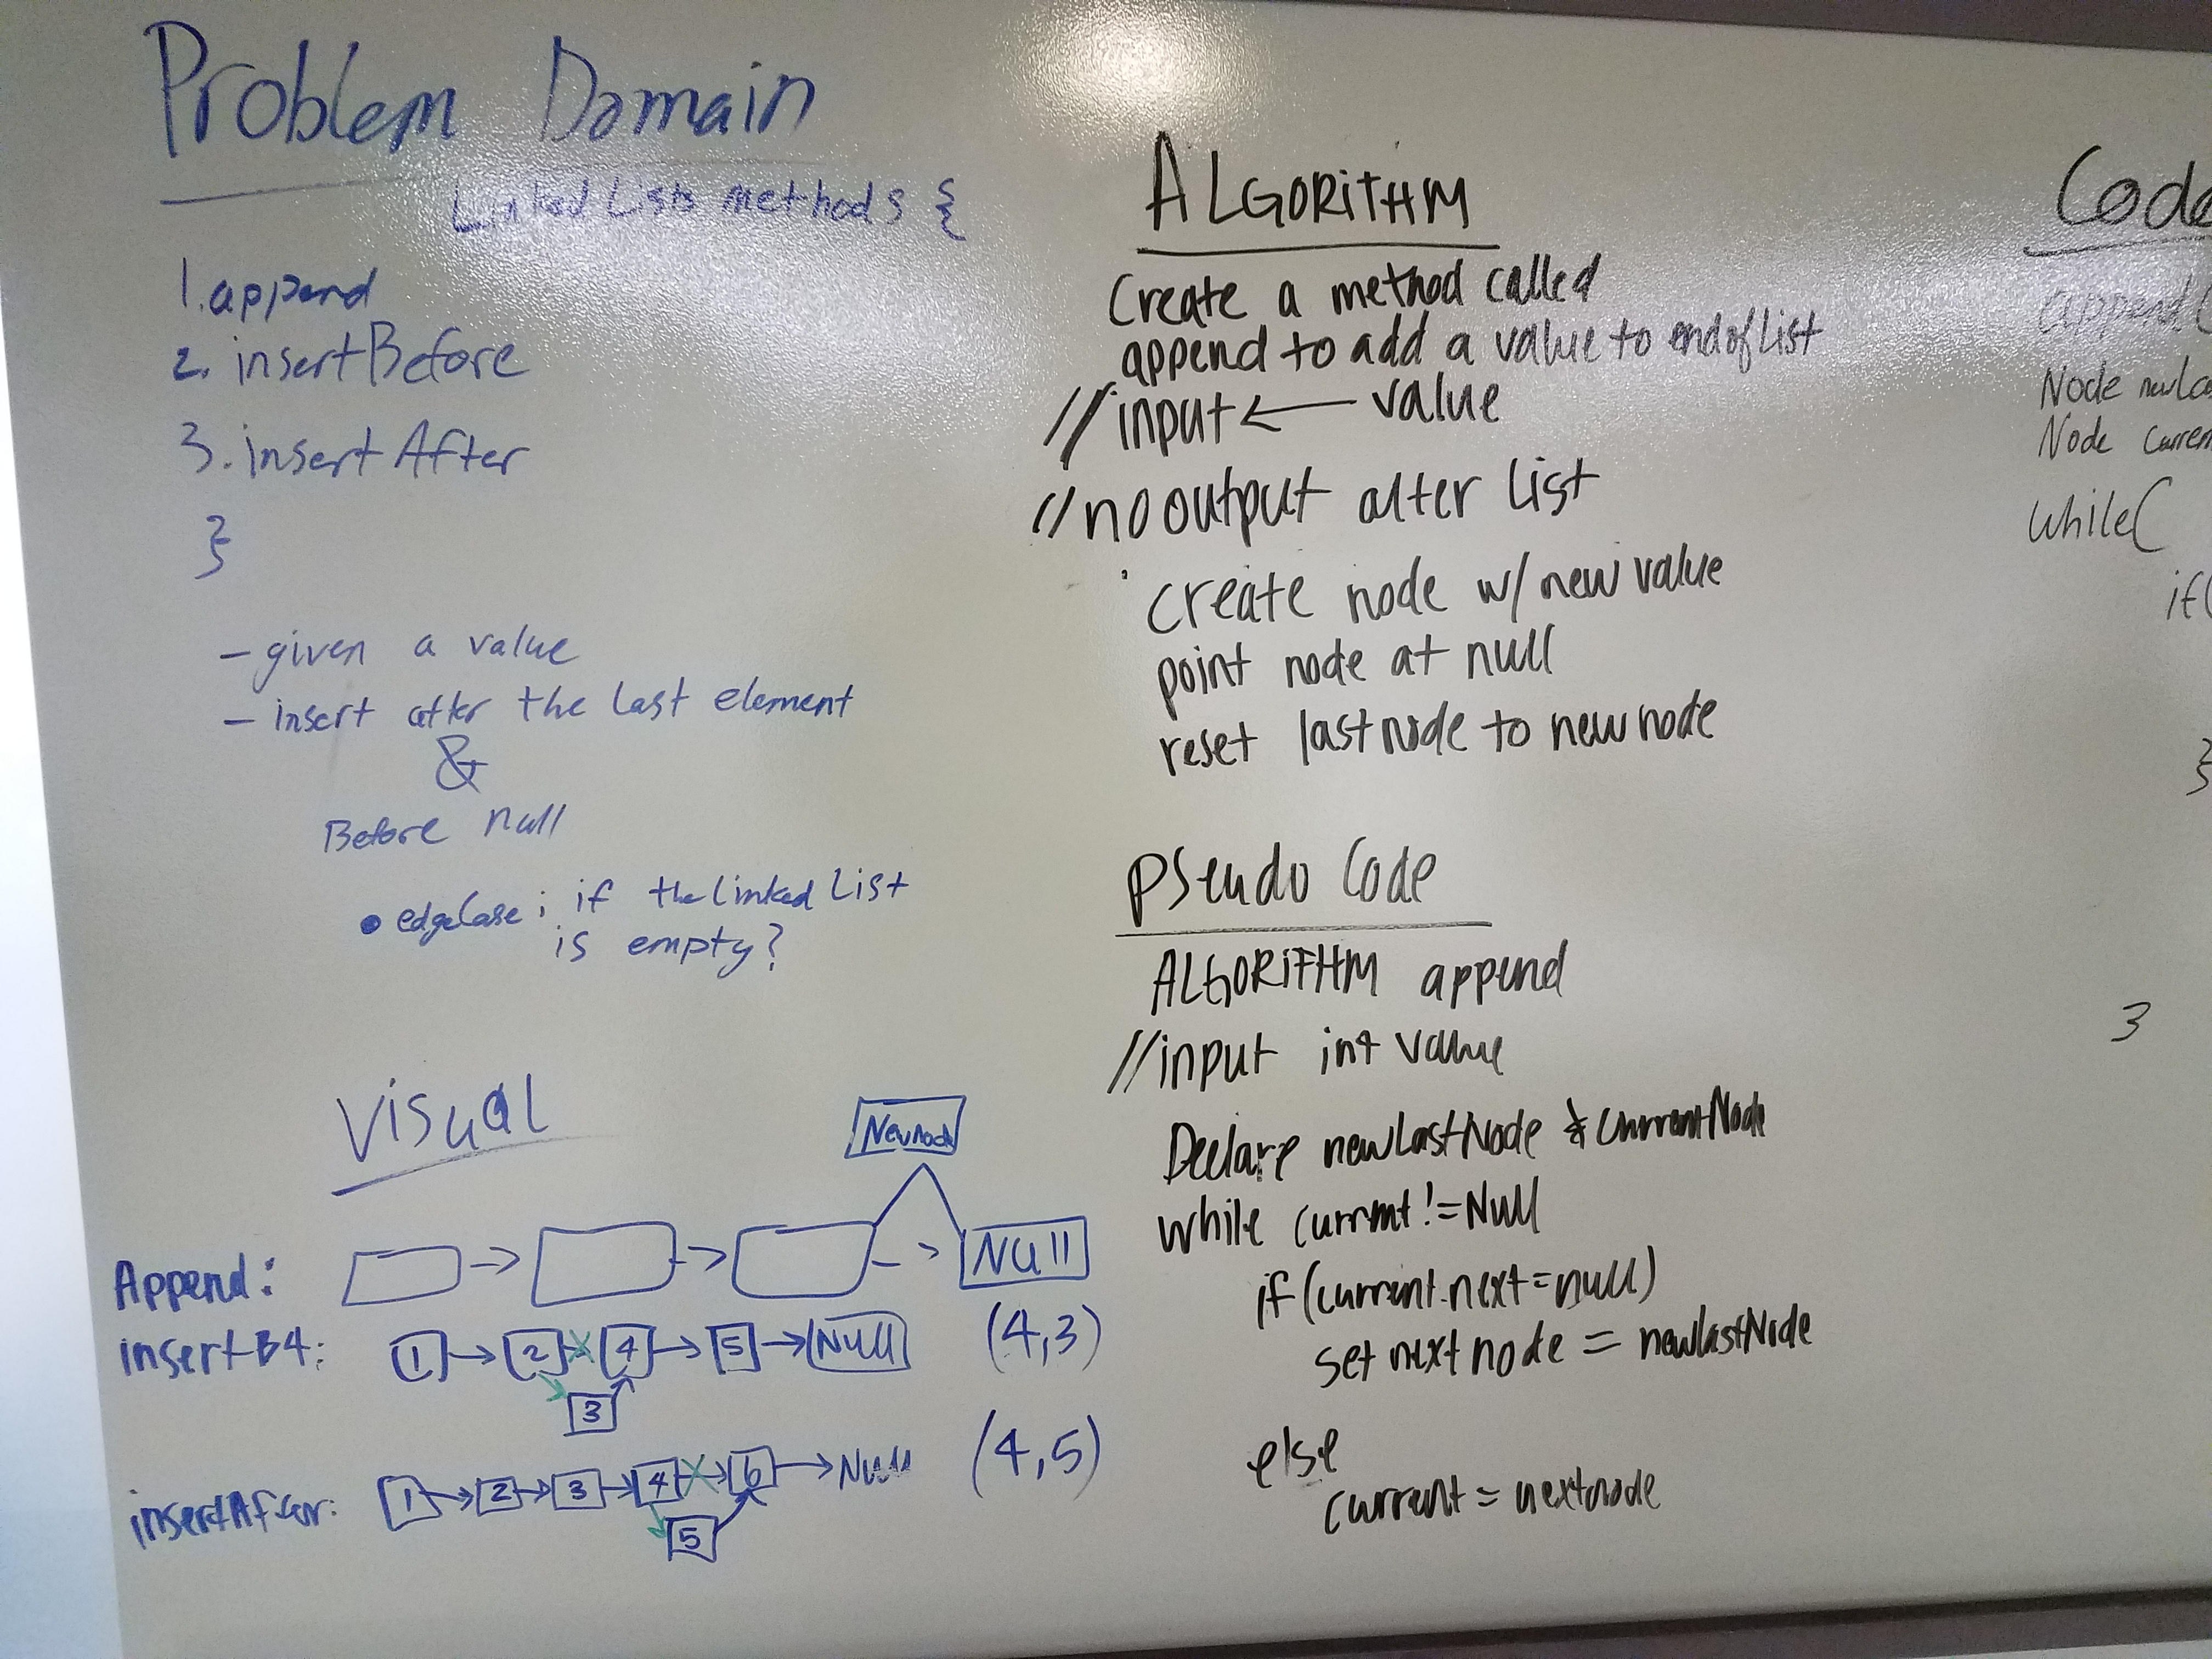 Problem Domain
Linked Lists methods {
1. append
2. insertBefore
3. insertAfter
}
- given a value
- insert after the last element
&
Before null
• edgeCase; if the Linked List
is empty?
Visual
NewNode
Append:
Null
insertB4:
1 2 4 5 Null (4,3)
3
insertAfter:
1 2 3 4 6 Null (4,5)
5
ALGORITHM
Create a method called
append to add a value to end of List
// input ← value
// no output alter List
create node w/ new value
point node at null
reset last node to new node
Pseudo Code
ALGORITHM append
// input int value
Declare newLastNode & currentNode
while current != Null
if (current.next = null)
set next node = newlastNode
else
current = nextnode
Code
append(
Node newLa
Node Curren
while(
if(
}
}